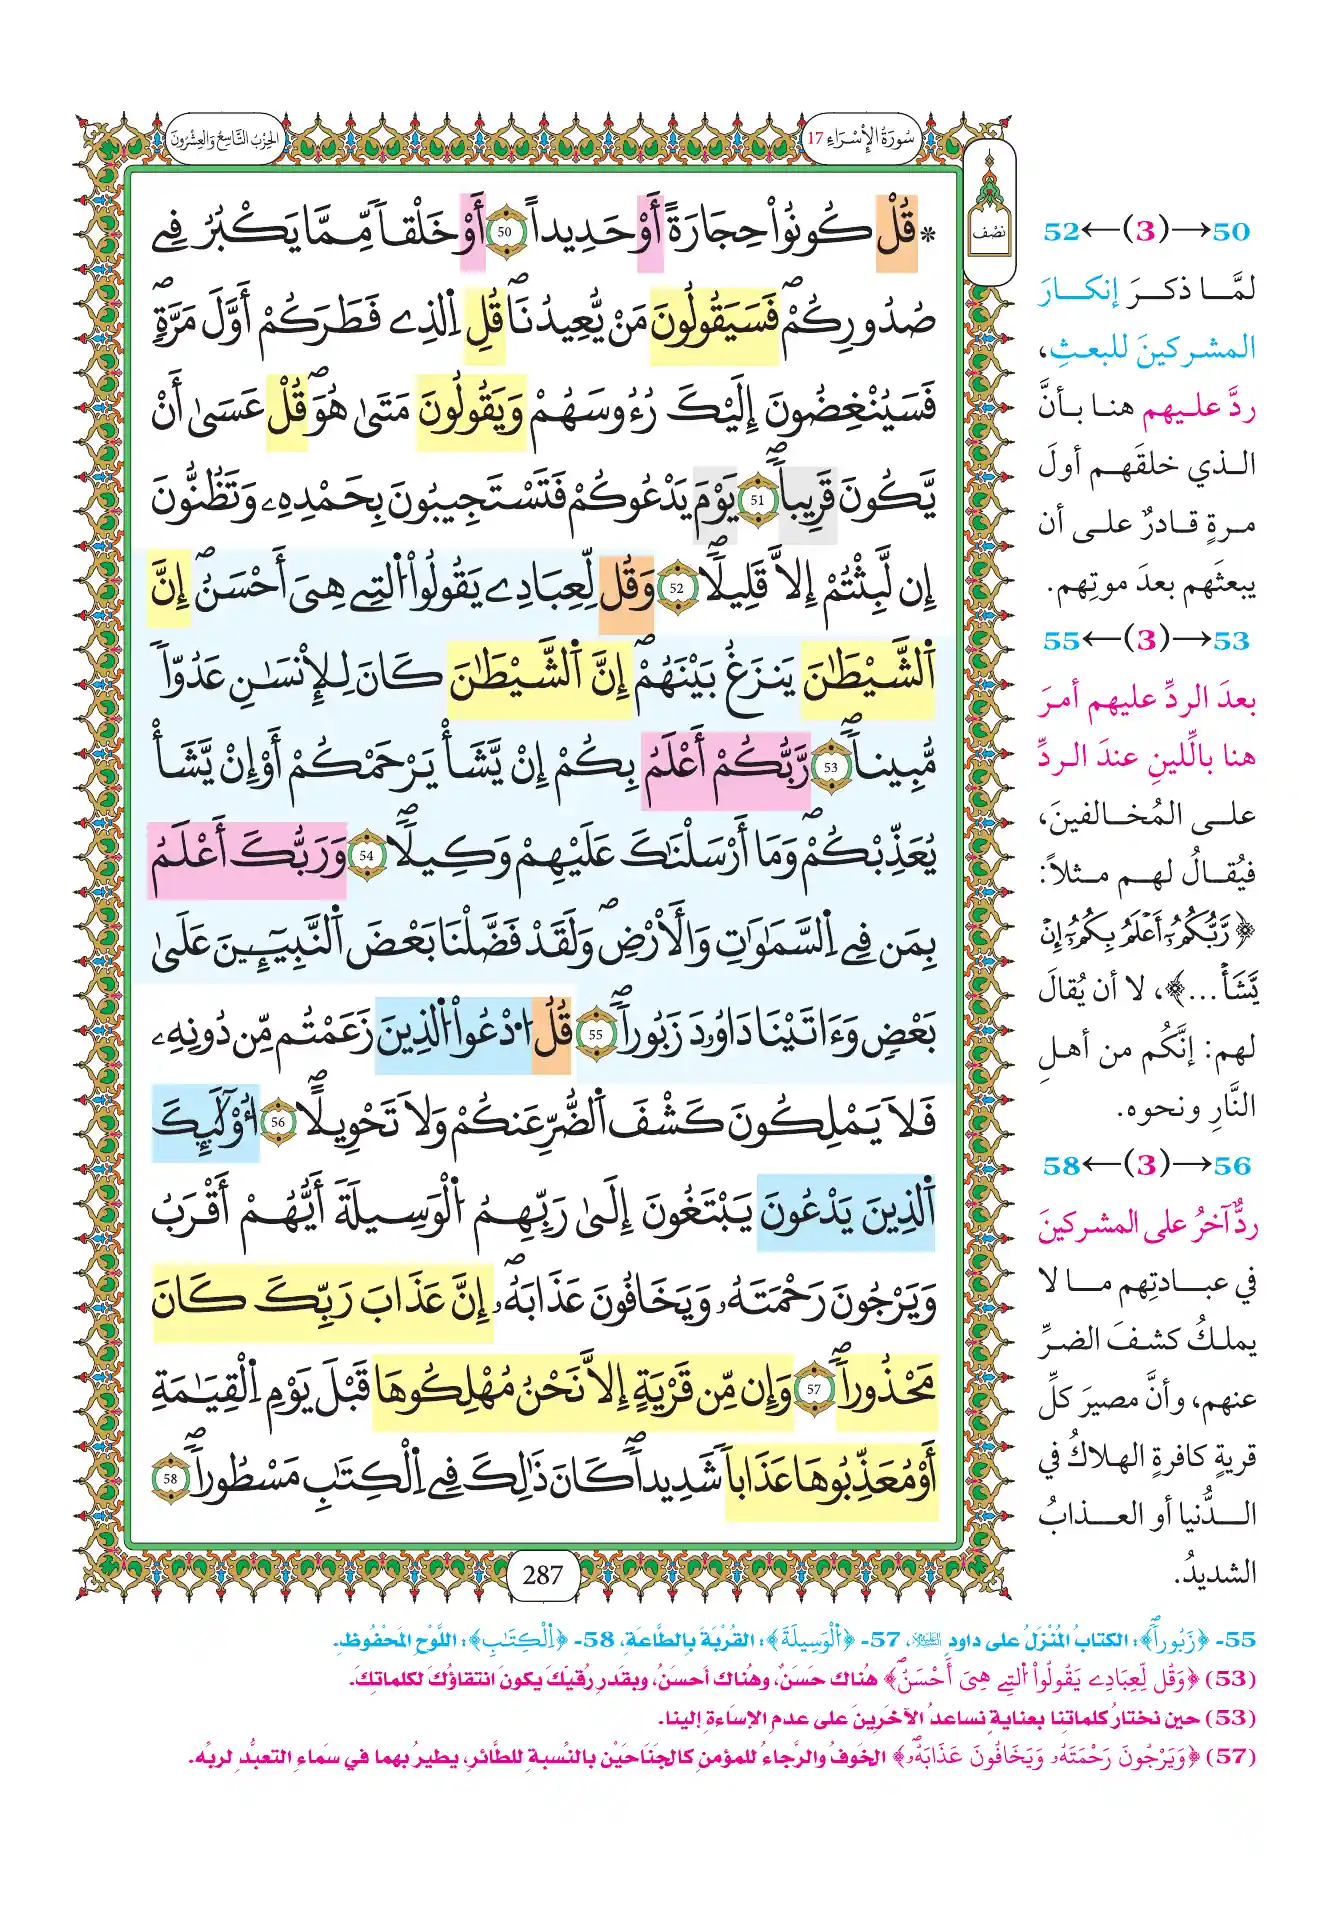 سُورَةُ الْإِسْرَاءِ 17
الحِزْبُ التَّاسِعُ وَالعِشْرُونَ
نصف
* قُلْ كُونُواْ حِجَارَةً أَوْ حَدِيداً 50 أَوْ خَلْقاً مِّمَّا يَكْبُرُ فِے
صُدُورِكُمْۖ فَسَيَقُولُونَ مَنْ يُّعِيدُنَاۖ قُلِ اِ۬لذِے فَطَرَكُمْ أَوَّلَ مَرَّةٖۖ
فَسَيُنْغِضُونَ إِلَيْكَ رُءُوسَهُمْ وَيَقُولُونَ مَتَىٰ هُوَۖ قُلْ عَسَىٰ أَنْ
يَّكُونَ قَرِيباًۖ 51 يَوْمَ يَدْعُوكُمْ فَتَسْتَجِيبُونَ بِحَمْدِهِۦ وَتَظُنُّونَ
إِن لَّبِثْتُمْ إِلاَّ قَلِيلاًۖ 52 وَقُل لِّعِبَادِے يَقُولُواْ اُ۬لتِے هِىَ أَحْسَنُۖ إِنَّ
اَ۬لشَّيْطَٰنَ يَنزَغُ بَيْنَهُمْۖ إِنَّ اَ۬لشَّيْطَٰنَ كَانَ لِلْإِنْسَٰنِ عَدُوّاً
مُّبِيناًۖ 53 رَّبُّكُمْ أَعْلَمُ بِكُمْ إِنْ يَّشَأْ يَرْحَمْكُمْ أَوْ إِنْ يَّشَأْ
يُعَذِّبْكُمْۖ وَمَا أَرْسَلْنَٰكَ عَلَيْهِمْ وَكِيلاًۖ 54 وَرَبُّكَ أَعْلَمُ
بِمَن فِے اِ۬لسَّمَٰوَٰتِ وَالْأَرْضِۖ وَلَقَدْ فَضَّلْنَا بَعْضَ اَ۬لنَّبِيٓـِٕينَ عَلَىٰ
بَعْضٖ وَءَاتَيْنَا دَاوُۥدَ زَبُوراًۖ 55 قُلُ اُ۟دْعُواْ اُ۬لذِينَ زَعَمْتُم مِّن دُونِهِۦ
فَلاَ يَمْلِكُونَ كَشْفَ اَ۬لضُّرِّ عَنكُمْ وَلاَ تَحْوِيلاًۖ 56 اُ۟وْلَٰٓئِكَ
اَ۬لذِينَ يَدْعُونَ يَبْتَغُونَ إِلَىٰ رَبِّهِمُ اُ۬لْوَسِيلَةَ أَيُّهُمْ أَقْرَبُ
وَيَرْجُونَ رَحْمَتَهُۥ وَيَخَافُونَ عَذَابَهُۥۖ إِنَّ عَذَابَ رَبِّكَ كَانَ
مَحْذُوراًۖ 57 وَإِن مِّن قَرْيَةٍ إِلاَّ نَحْنُ مُهْلِكُوهَا قَبْلَ يَوْمِ اِ۬لْقِيَٰمَةِ
أَوْ مُعَذِّبُوهَا عَذَاباً شَدِيداًۖ كَانَ ذَٰلِكَ فِے اِ۬لْكِتَٰبِ مَسْطُوراًۖ 58
287
50→(3)←52
لمَّا ذكرَ إنكارَ
المشركينَ للبعثِ،
ردَّ عليهم هنا بأنَّ
الذي خلقَهم أولَ
مرةٍ قادرٌ على أن
يبعثَهم بعدَ موتِهم.
53→(3)←55
بعدَ الردِّ عليهم أمرَ
هنا باللِّينِ عندَ الردِّ
على المُخالفينَ،
فيُقالُ لهم مثلاً:
﴿رَّبُّكُمُۥٓ أَعْلَمُ بِكُمُۥٓ إِنْ
يَّشَأْ...﴾، لا أن يُقالَ
لهم: إنَّكُم من أهلِ
النَّارِ ونحوه.
56→(3)←58
ردٌّ آخرُ على المشركينَ
في عبادتِهم ما لا
يملكُ كشفَ الضرِّ
عنهم، وأنَّ مصيرَ كلِّ
قريةٍ كافرةٍ الهلاكُ في
الدُّنيا أو العذابُ
الشديدُ.
55- ﴿زَبُوراًۖ﴾: الكتابُ المُنْزَلُ على داودَ عليه السلام، 57- ﴿اُ۬لْوَسِيلَةَ﴾: القُرْبَةَ بِالطَّاعَةِ، 58- ﴿اِ۬لْكِتَٰبِ﴾: اللَّوْحِ المَحْفُوظِ.
(53) ﴿وَقُل لِّعِبَادِے يَقُولُواْ اُ۬لتِے هِىَ أَحْسَنُۖ﴾ هُناك حَسَنٌ، وهُناك أحسَنُ، وبقَدرِ رُقيِّكَ يكون انتقاؤُكَ لكلماتِكَ.
(53) حين نختارُ كلماتِنا بعنايةٍ نساعدُ الآخَرينَ على عدمِ الإساءةِ إلينا.
(57) ﴿وَيَرْجُونَ رَحْمَتَهُۥ وَيَخَافُونَ عَذَابَهُۥۖ﴾ الخَوفُ والرَّجاءُ للمؤمنِ كالجَنَاحَيْنِ بالنِّسبةِ للطَّائرِ، يطيرُ بهما في سَماءِ التعبُّدِ لربِّه.